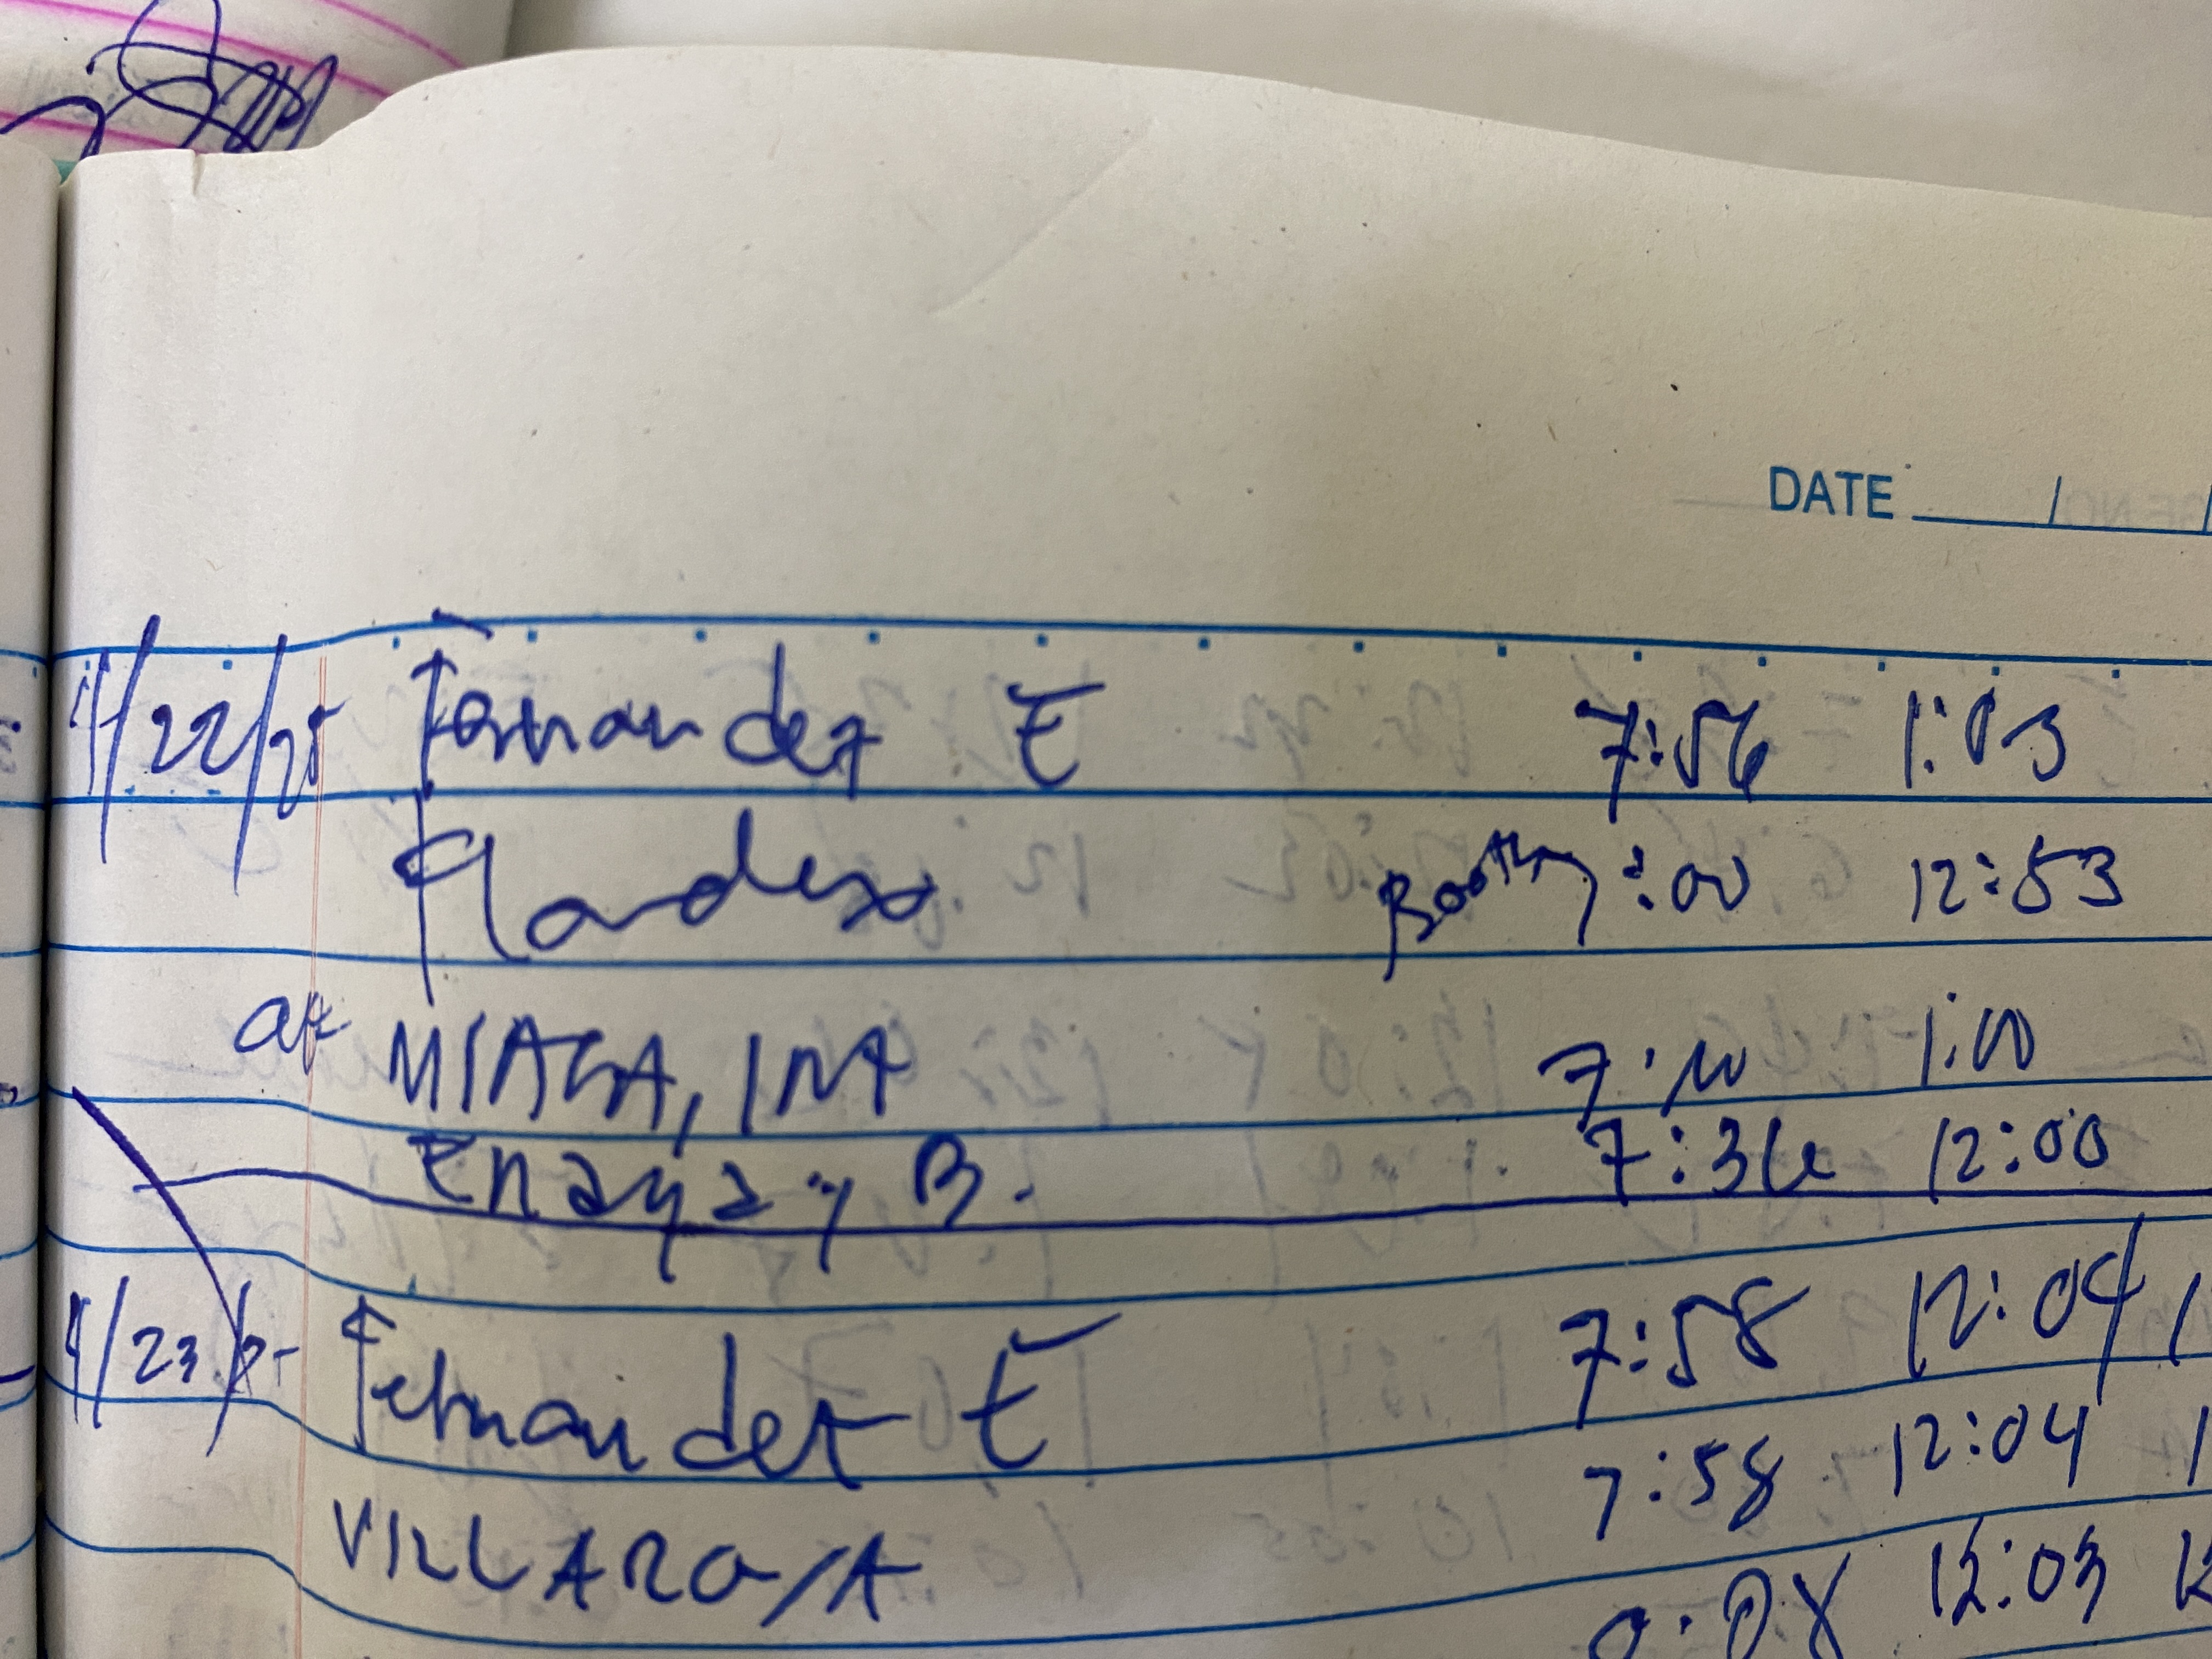 DATE / /
4/22/25 Fernandez E 7:56 1:03
Booth 7:00 12:53
MIAGA, INA 7:10 1:00
Enayay B. 7:36 12:00
4/23/25 Fernandez E 7:58 12:04
VILLARO/A 7:58 12:04
12:03